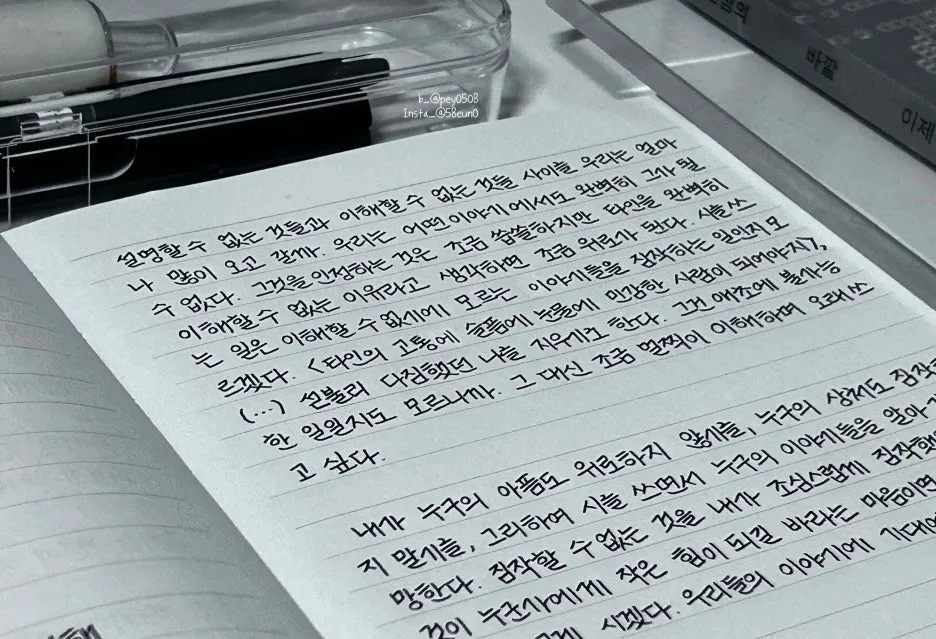 b_@pey0508
Insta_@58eun0
바깥
이제
설명할 수 없는 것들과 이해할 수 없는 것들 사이를 우리는 얼마
나 많이 오고 갈까. 우리는 어떤 이야기에서도 완벽히 그가 될
수 없다. 그것을 인정하는 것은 조금 씁쓸하지만 타인을 완벽히
이해할 수 없는 이유라고 생각하면 조금 위로가 된다. 시를 쓰
는 일은 이해할 수 없기에 모르는 이야기들을 짐작하는 일인지 모
르겠다. <타인의 고통에 슬픔에 눈물에 민감한 사람이 되어야지>,
(...) 섣불리 다짐했던 나를 지우려고 한다. 그건 애초에 불가능
한 일일지도 모르니까. 그 대신 조금 멀찍이 이해하며 오래 쓰
고 싶다.
내가 누구의 아픔도 위로하지 않기를, 누구의 상처도
지 말기를, 그리하여 시를 쓰면서 누구의 이야기들을 알아
망한다. 짐작할 수 없는 것을 내가 조심스럽게
것이 누군가에게 작은 힘이 되길 바라는 마음이면
시겠다. 우리들의 이야기에 기대어